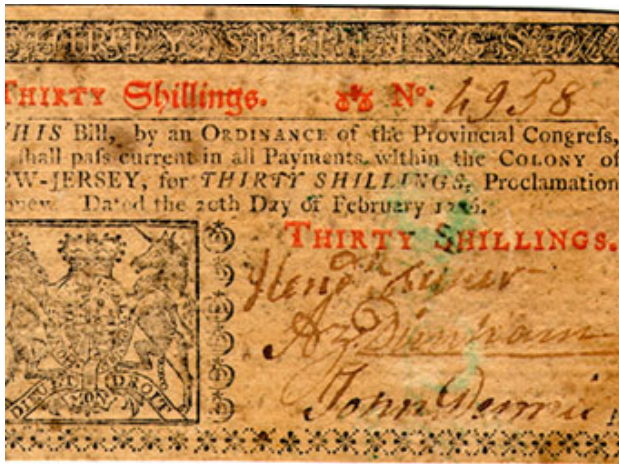 THIRTY SHILLINGS
THIRTY Shillings. No. 4958
THIS Bill, by an ORDINANCE of the Provincial Congreſs,
ſhall paſs current in all Payments within the COLONY of
EW-JERSEY, for THIRTY SHILLINGS, Proclamation
Dated the 20th Day of February 1776.
THIRTY SHILLINGS.
Az. Dunham
John Dennis
DIEU ET MON DROIT